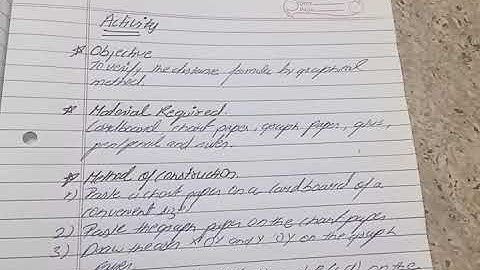 Activity
Objective
To verify the distance formula by graphical
method.
Material Required.
Cardboard, chart paper, graph paper, glue,
pen/pencil and ruler.
Method of construction
1) Paste a chart paper on a cardboard of a
convenient size.
2) Paste the graph paper on the chart paper
3) Draw the axes X'OX and Y'OY on the graph
paper
on the